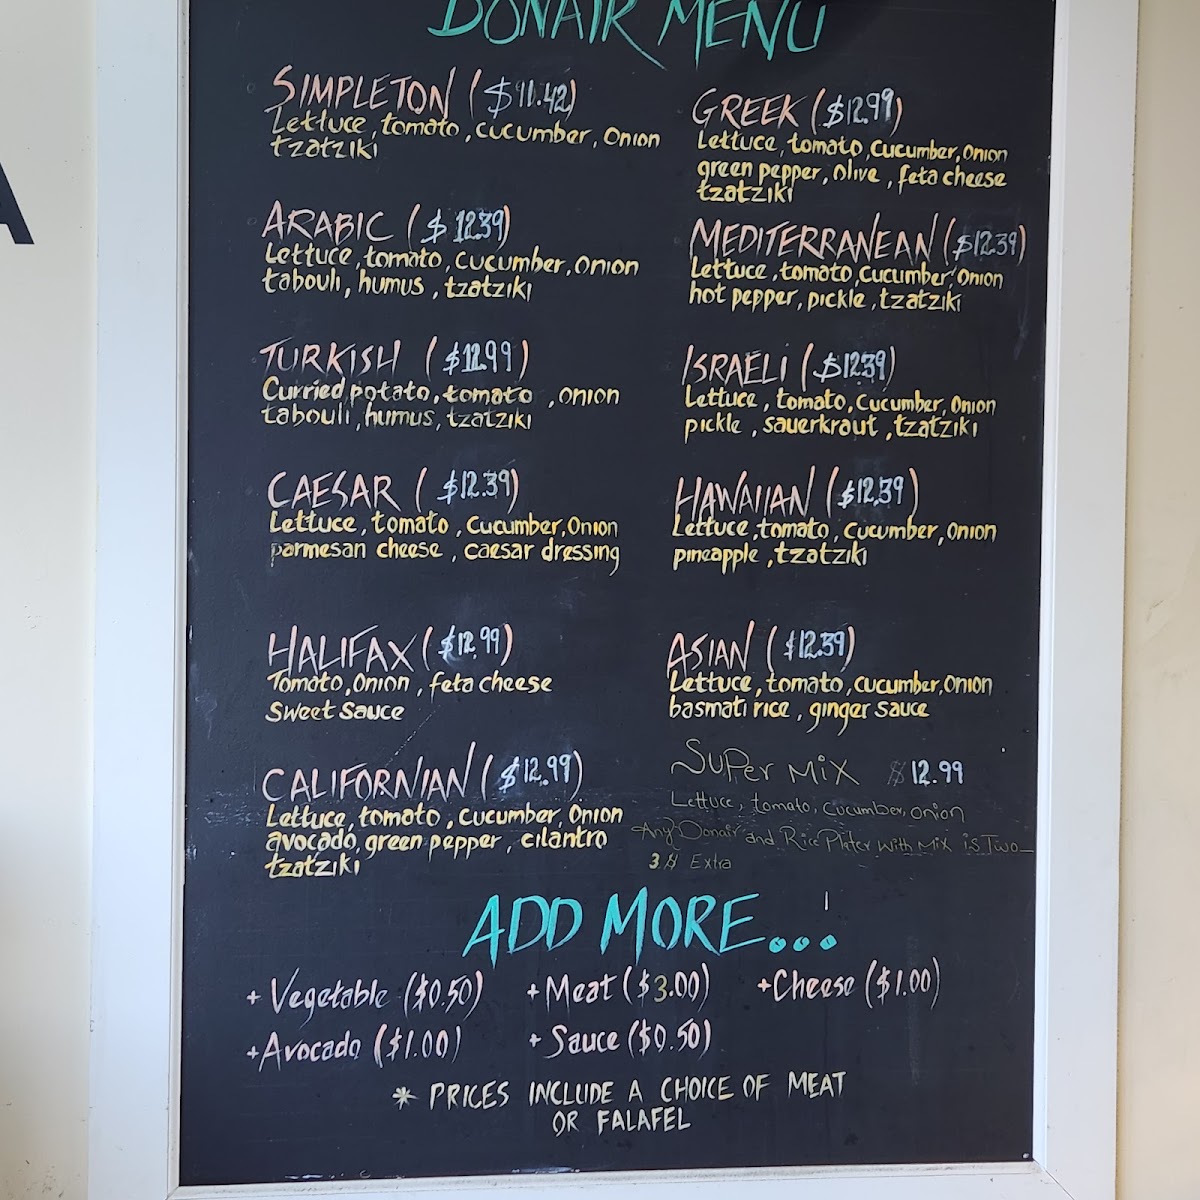 A
DONAIR MENU
SIMPLETON ($11.42)
Lettuce, tomato, cucumber, onion
tzatziki
ARABIC ($12.39)
Lettuce, tomato, cucumber, onion
tabouli, humus, tzatziki
TURKISH ($12.99)
Curried potato, tomato, onion
tabouli, humus, tzatziki
CAESAR ($12.39)
Lettuce, tomato, cucumber, onion
parmesan cheese, caesar dressing
HALIFAX ($12.99)
Tomato, onion, feta cheese
sweet sauce
CALIFORNIAN ($12.99)
Lettuce, tomato, cucumber, onion
avocado, green pepper, cilantro
tzatziki
GREEK ($12.99)
Lettuce, tomato, cucumber, onion
green pepper, olive, feta cheese
tzatziki
MEDITERRANEAN ($12.39)
Lettuce, tomato, cucumber, onion
hot pepper, pickle, tzatziki
ISRAELI ($12.39)
Lettuce, tomato, cucumber, onion
pickle, sauerkraut, tzatziki
HAWAIIAN ($12.39)
Lettuce, tomato, cucumber, onion
pineapple, tzatziki
ASIAN ($12.39)
Lettuce, tomato, cucumber, onion
basmati rice, ginger sauce
SUPer MiX $12.99
Lettuce, tomato, cucumber, onion
Any Donair and Rice Plater with Mix is Two
3$ Extra
ADD MORE...
+ Vegetable ($0.50) + Meat ($3.00) + Cheese ($1.00)
+ Avocado ($1.00) + Sauce ($0.50)
* PRICES INCLUDE A CHOICE OF MEAT
OR FALAFEL